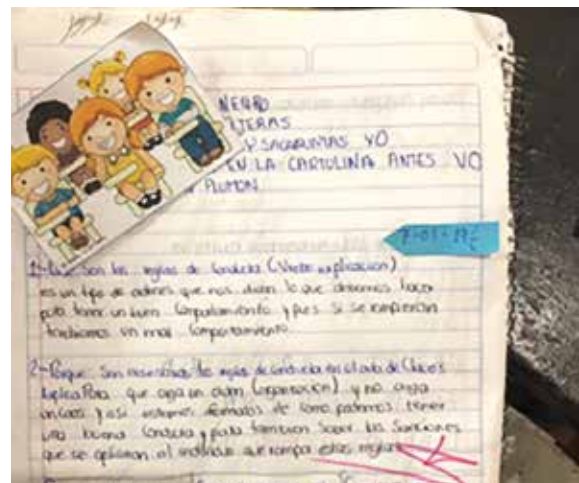 NEGRO
TIJERAS
Y SACAPUNTAS YO
EN LA CARTULINA ANTES VO
PLUMON
1- Que Son las reglas de Conducta (Vieste explicación)
es un tipo de ordenes que nos dicen lo que debemos hacer
para tener un buen Comportamiento y pues si se rompieran
tendriamos un mal Comportamiento
2- Porque Son necesarias las reglas de conducta en el aula de Clases
explica Para que aiga un orden (organización) y no aiga
un caos y asi estemos de como podemos tener
una buena Conducta y para tambien Saber las Sanciones
que se aplicaran al individuo que rompa estas reglas